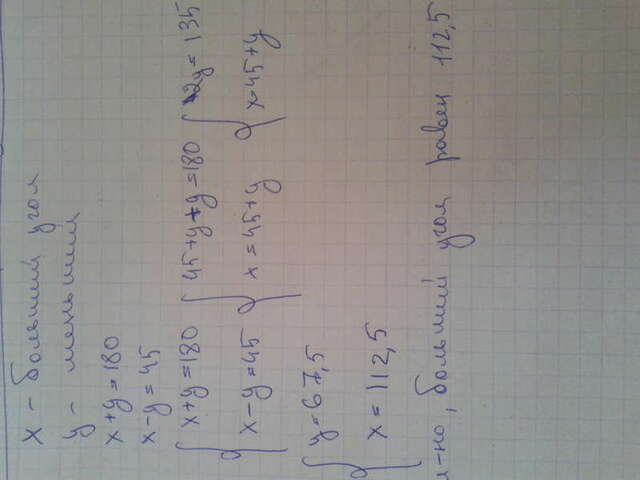 x – больший угол
y – меньший
x+y=180
x-y=45
{x+y=180 {45+y+y=180 {2y=135
{x-y=45 {x=45+y {x=45+y
{y=67,5
{x=112,5
-но, больший угол равен 112,5